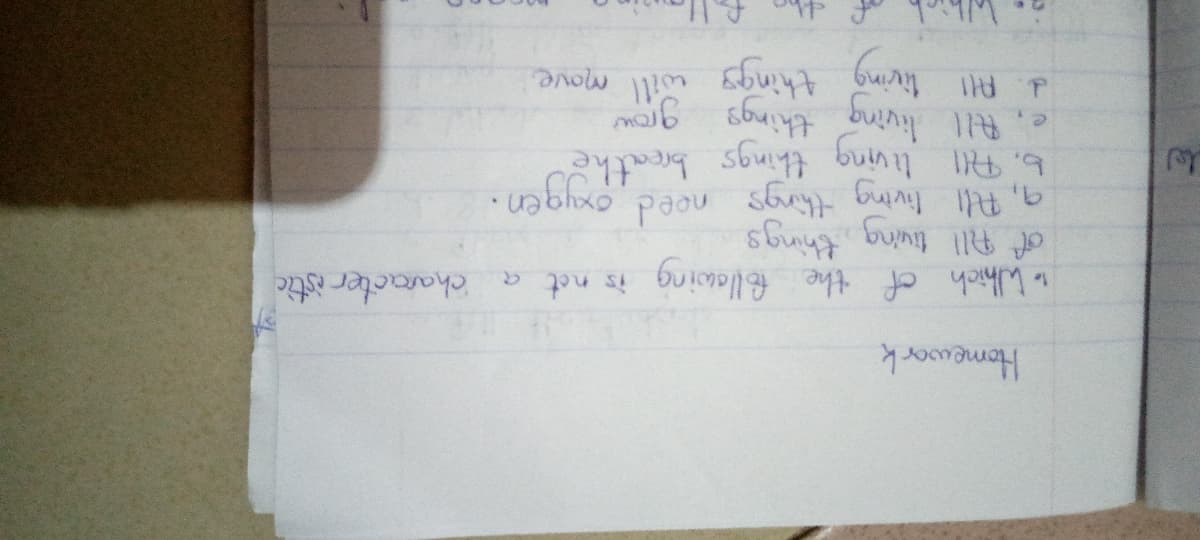 Homework
1. Which of the following is not a characteristic
of All living things
a, All living things need oxygen.
b. All living things breathe
c. All living things grow
d. All living things will move
2. Which of the following